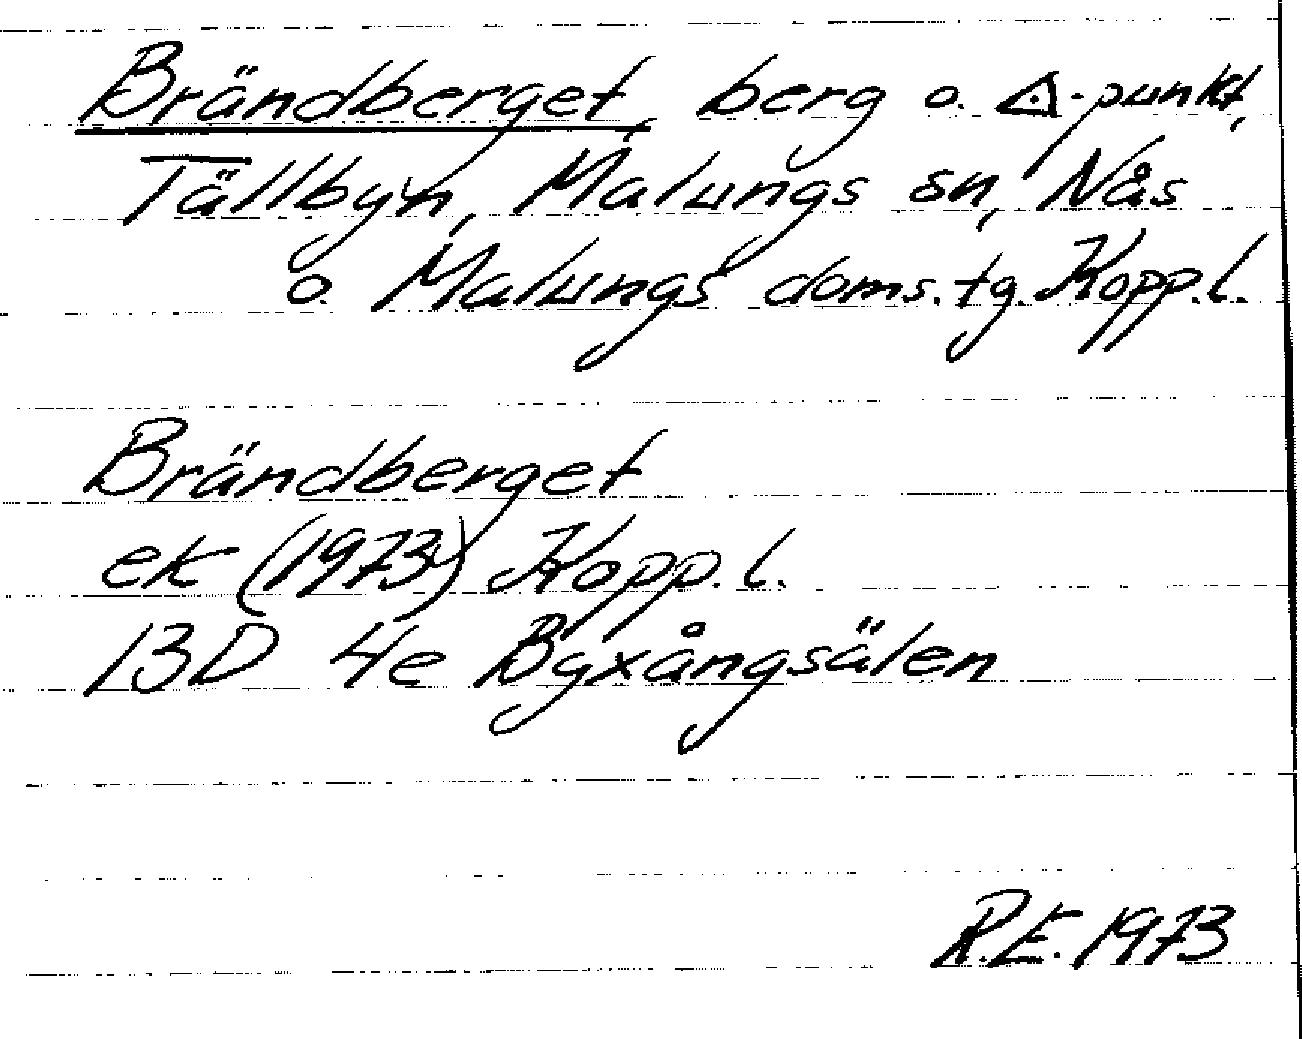 Brändberget, berg o. △-punkt,
Tällbyn, Malungs sn, Nås
o. Malungs doms. tg. Kopp. l.
Brändberget
ek (1973) Kopp. l.
13D 4e Byxångsälen
R.E. 1973